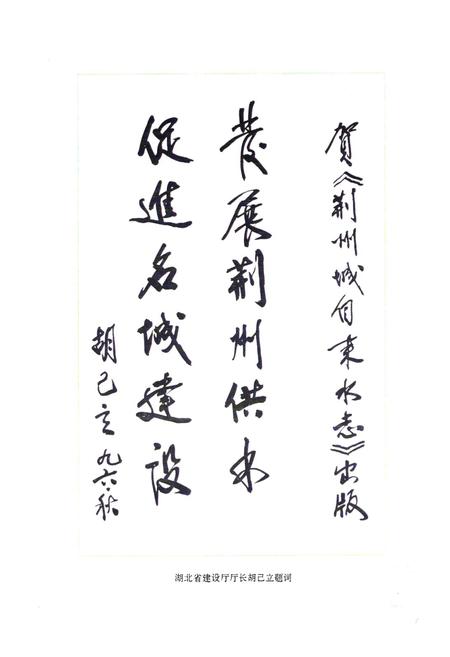 賀《荆州城自来水志》出版
發展荆州供水
促進名城建设
胡己立 九六·秋
湖北省建设厅厅长胡己立题词